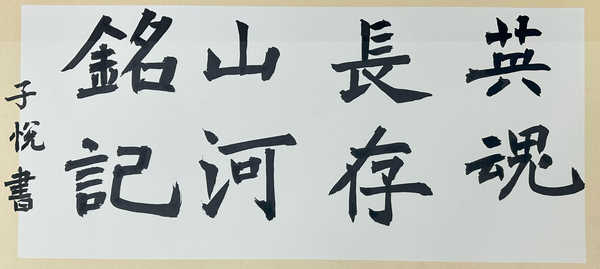 英魂
長存
山河
銘記
子悅書